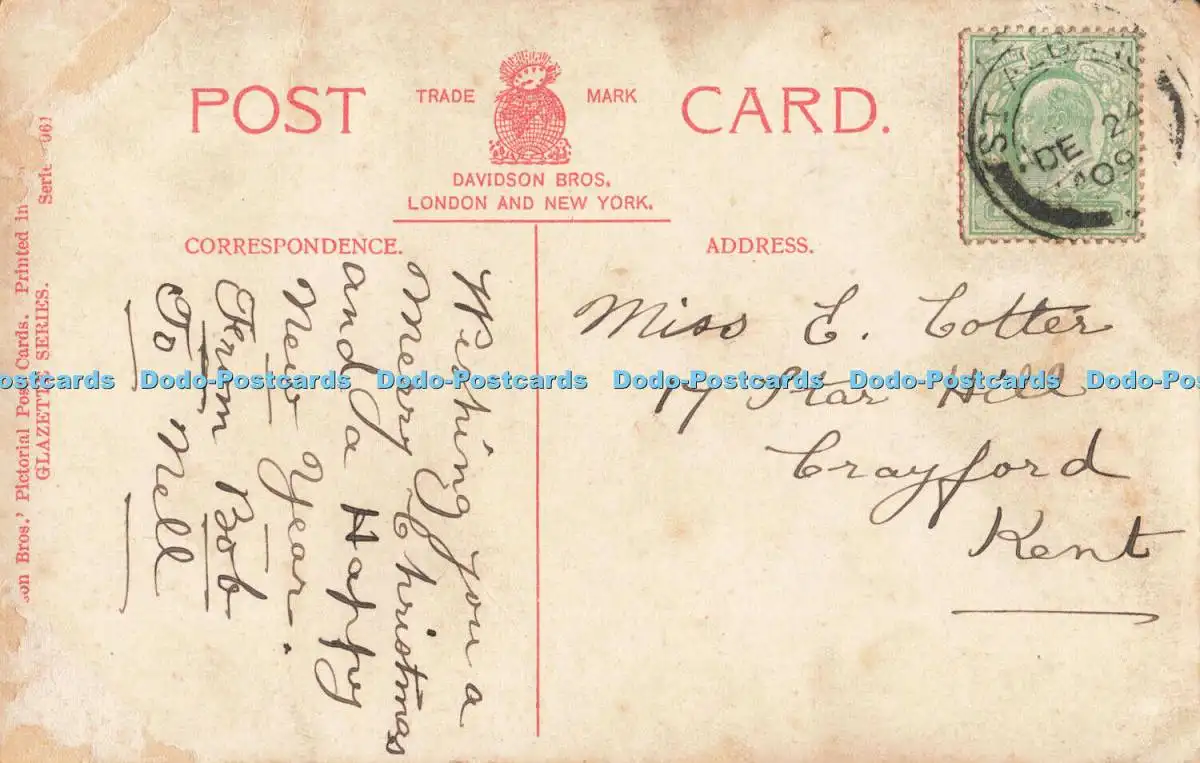 POST CARD.
TRADE MARK
DAVIDSON BROS.
LONDON AND NEW YORK.
CORRESPONDENCE.
ADDRESS.
Wishing you a
Merry Christmas
and a Happy
New Year.
From Bob
To Nell
Miss E. Cotter
Star Hill
Crayford
Kent
ST ALBANS
DE 24
09
Bros.' Pictorial Post Cards. Printed in
GLAZETTE SERIES.
Dodo-Postcards Dodo-Postcards Dodo-Postcards Dodo-Postcards Dodo-Postcards